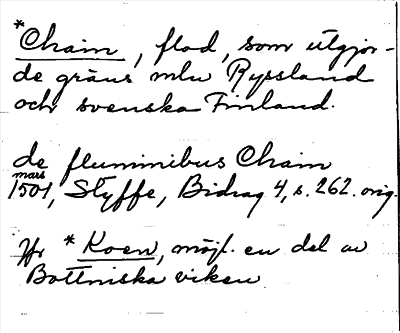 *Chain, flod, som utgjor-
de gräns mlu Ryssland
och svenska Finland.
de fluminibus Chain
mars
1501, Styffe, Bidrag 4, s. 262. orig.
Jfr *Koen, möjl. en del av
Bottniska viken